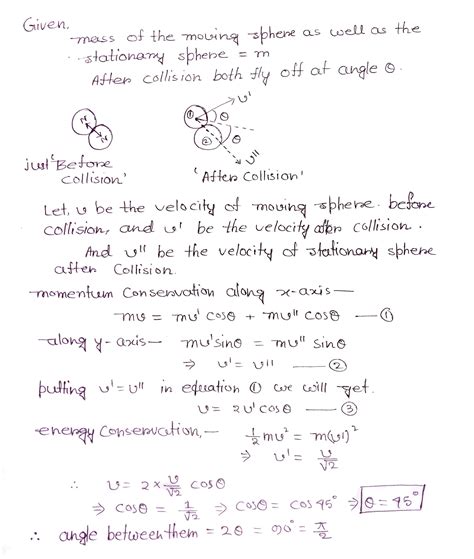 Given,
mass of the moving sphere as well as the
stationary sphere = m
After collision both fly off at angle θ.
N N
① υ' θ
② θ υ''
just 'Before
collision'
'After Collision'
Let, υ be the velocity of moving sphere before
collision, and υ' be the velocity after collision.
And υ'' be the velocity of stationary sphere
after Collision.
momentum Conservation along x-axis—
mυ = mυ' cosθ + mυ'' cosθ —①
along y-axis— mυ'sinθ = mυ'' sinθ
⇒ υ' = υ'' —②
putting υ'=υ'' in equation ① we will get.
υ = 2υ'cosθ —③
energy Conservation,— ½mυ² = m(υ')²
⇒ υ' = υ/√2
∴ υ = 2 × υ/√2 cosθ
⇒ cosθ = 1/√2 ⇒ cosθ = cos45° ⇒ θ = 45°
∴ angle between them = 2θ = 90° = π/2